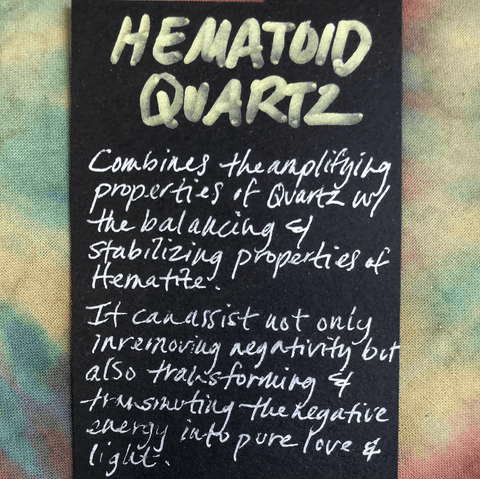 HEMATOID
QUARTZ
Combines the amplifying
properties of Quartz w/
the balancing &
stabilizing properties of
Hematite.
It can assist not only
in removing negativity but
also transforming &
transmuting the negative
energy into pure love &
light.